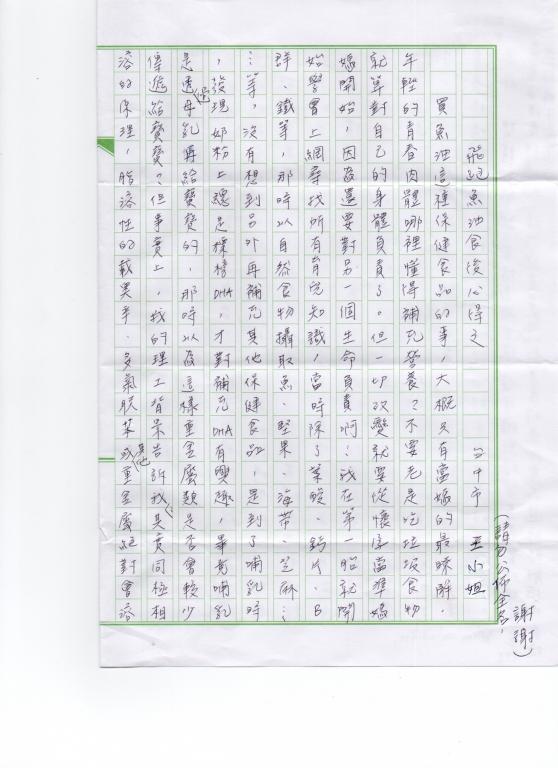 飛迅魚油食後心得文
台中市 王小姐
(請勿公佈全名,
謝謝)
買魚油這種保健食品的事,大概只有當媽的最瞭解。
年輕的青春肉體哪裡懂得補充營養?不要老是吃垃圾食物
就算對自己的身體負責了。但一切改變就要從懷孕當準媽
媽開始,因為還要對另一個生命負責啊!我在第一胎就開
始學會上網尋找所有育兒知識,當時除了葉酸、鈣片、B
群、鐵等,那時以自然食物攝取魚、堅果、海帶、芝麻…
…等,沒有想到另外再補充其他保健食品,是到了哺乳時
,發現奶粉上總是標榜DHA,才對補充DHA有興趣,畢竟哺乳
是透過母乳再給寶寶的,那時以為這樣重金屬類是否會較少
傳遞給寶寶?但事實上,我的理工背景告訴我,其實同極相
溶的保理,脂溶性的戴奧辛、多氯联苯或其他重金屬絕對會溶